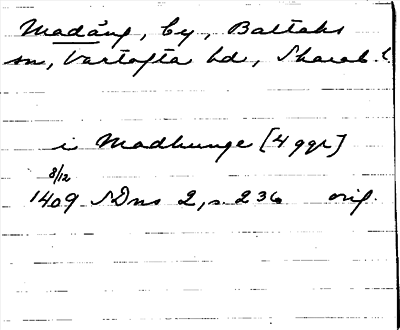 Madäng, by, Baltaks
sn, Vartofta hd, Skarab. l.
i Madhunge [4 ggr]
8/12
1409 SDns 2, s. 236 orig.